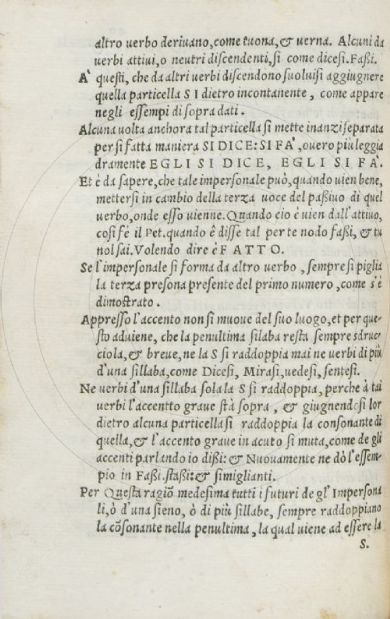 altro verbo derivano, come tuona, & verna. Alcuni da
verbi attiui, o neutri discendenti, si come dicesi. Faßi.
A' questi, che da altri verbi discendono suoluisi aggiugnere
quella particella SI dietro incontanente, come appare
negli essempi di sopra dati.
Alcuna volta anchora tal particella si mette inanzi separata
per si fatta maniera SI DICE: SI FA', ouero piu leggia
dramente EGLI SI DICE, EGLI SI FA'.
Et è da sapere, che tale impersonale può, quando vien bene,
mettersi in cambio della terza voce del paßiuo di quel
verbo, onde esso vienne. Quando cio è vien dall'attiuo,
cosi fè il Pet. quando ê disse tal per te nodo faßi, & tu
nol sai. Volendo dire è FATTO.
Se l'impersonale si forma da altro verbo, sempre si piglia
la terza presona presente del primo numero, come s'è
dimostrato.
Appresso l'accento non si muove del suo luogo, et per que-
sto aduiene, che la penultima silaba resta sempre sdruc-
ciola, & breue, ne la S si raddoppia mai ne verbi di più
d'una sillaba, come Dicesi, Mirasi, uedesi, sentesi.
Ne verbi d'una sillaba sola la S si raddoppia, perche à tai
verbi l'accentto graue stà sopra, & giugnendosi lor
dietro alcuna particella si raddoppia la consonante di
quella, & l'accento graue in acuto si muta, come de gli
accenti parlando io dißi: & Nuouamente ne dò l'essem-
pio in Faßi. staßi: & simiglianti.
Per Questa ragiō medesima tutti i futuri de gl' Impersona
li, ò d'una sieno, ò di più sillabe, sempre raddoppiano
la cōsonante nella penultima, la qual uiene ad essere la
S.